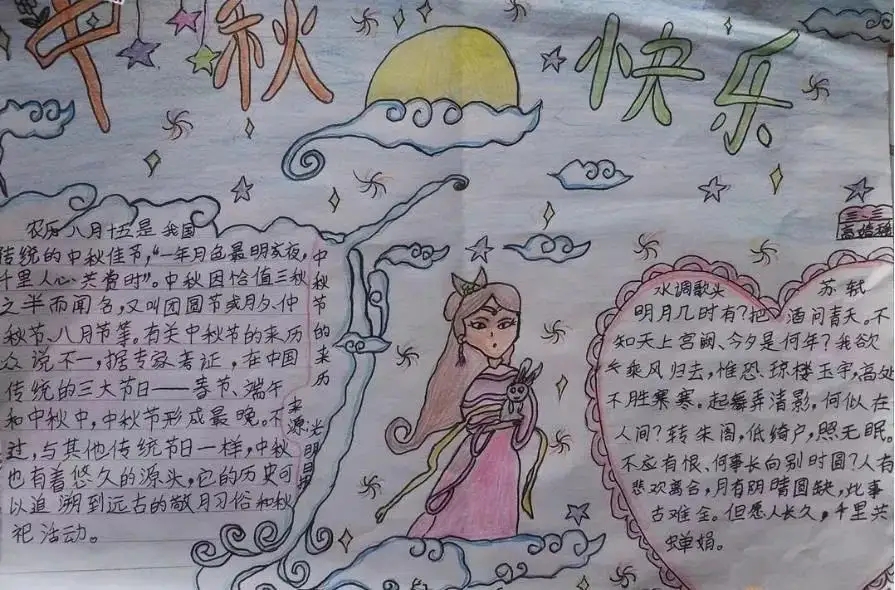 中秋
快乐
农历八月十五是我国
传统的中秋佳节，“一年月色最明家夜，
千里人心共赏时”。中秋因恰值三秋
之半而闻名，又叫团圆节或月夕、仲
秋节、八月节等。有关中秋节的来历
众说不一，据专家考证，在中国
传统的三大节日——春节、端午
和中秋中，中秋节形成最晚。不
过，与其他传统节日一样，中秋
也有着悠久的源头，它的历史可
以追溯到远古的敬月习俗和秋
祀活动。
中秋节的来历
来源：光明日报
三、三
水调歌头 苏轼
明月几时有？把酒问青天。不
知天上宫阙、今夕是何年？我欲
乘风归去，惟恐琼楼玉宇，高处
不胜寒寒。起舞弄清影，何似在
人间？转朱阁，低绮户，照无眠，
不应有恨、何事长向别时圆？人有
悲欢离合，月有阴晴圆缺，此事
古难全。但愿人长久，千里共
蝉娟。